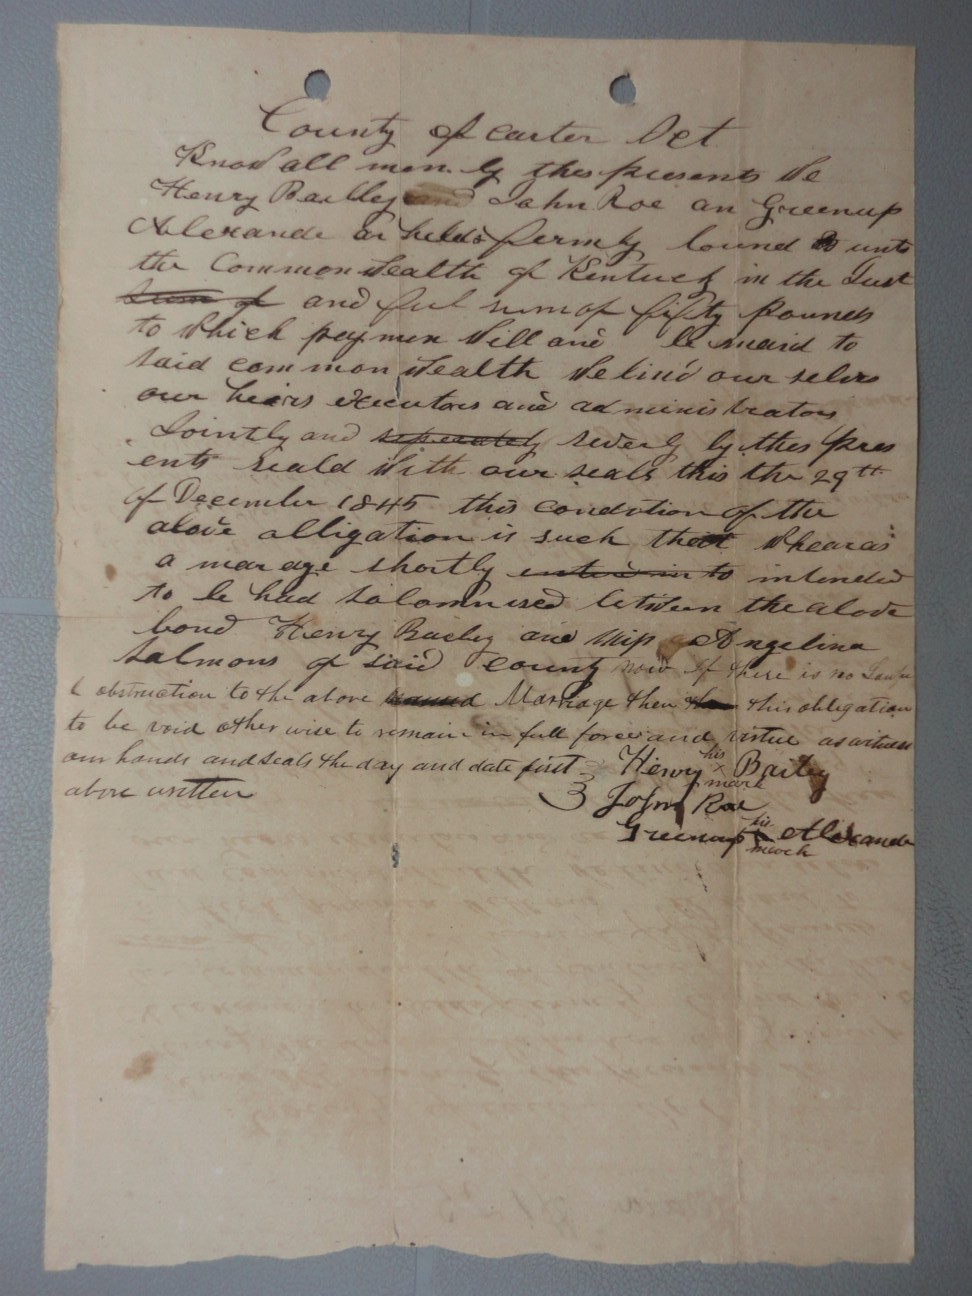 County of carter Set
Know all men by thes presents We
Henry Bailey and John Roe an Greenup
Alexande ar held & fermly bound unto
the Common Wealth of Kentuck in the Just
sum of and ful sum of fifty pounds
to Which paymen Will and be maid to
said common Wealth We bind our selvs
our heirs executors and administrators
Jointly and seperately severly by thes pres
ents seald With our seals this the 29th
of December 1845 this condition of the
above alligation is such that Whearas
a marage shortly entered in to intended
to be had solomnised between the above
bond Henry Bailey and Miss Angelina
Salmons of said county now if there is no Lawfu
l obstruction to the above Marriage then this obligation
to be void other wise to remain in full force and virtue as witness
our hands and seals the day and date first Henry his x mark Bailey
above written John Roe
Greenup his x march Alexande